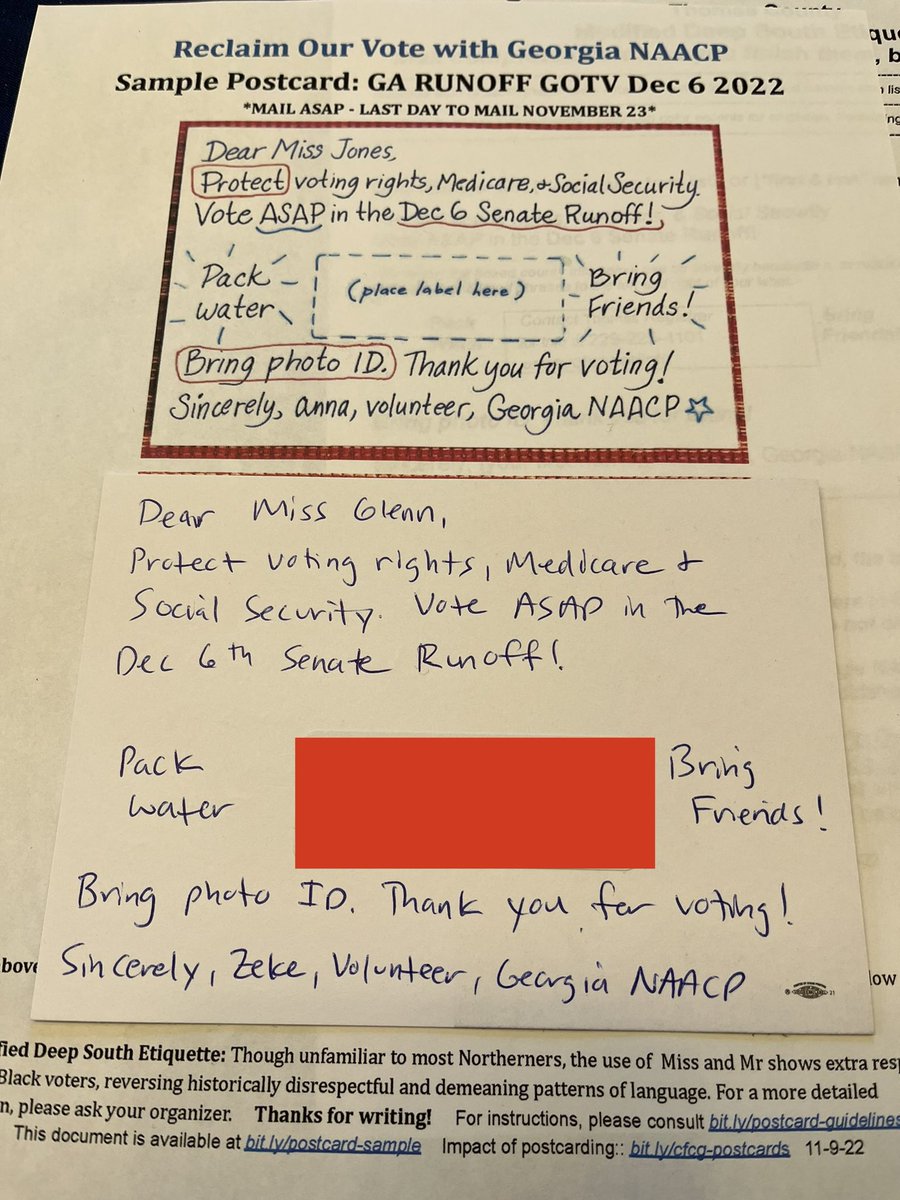 Thomas County
Reclaim Our Vote with Georgia NAACP
Sample Postcard: GA RUNOFF GOTV Dec 6 2022
*MAIL ASAP - LAST DAY TO MAIL NOVEMBER 23*
Dear Miss Jones,
Protect voting rights, Medicare, & Social Security.
Vote ASAP in the Dec 6 Senate Runoff!
Pack
water
(place label here)
Bring
Friends!
Bring photo ID. Thank you for voting!
Sincerely, anna, volunteer, Georgia NAACP
Dear Miss Glenn,
Protect voting rights, Medicare &
Social Security. Vote ASAP in the
Dec 6th Senate Runoff!
Pack
water
Bring
Friends!
Bring photo ID. Thank you for voting!
Sincerely, Zeke, Volunteer, Georgia NAACP
above
low
fied Deep South Etiquette: Though unfamiliar to most Northerners, the use of Miss and Mr shows extra resp
Black voters, reversing historically disrespectful and demeaning patterns of language. For a more detailed
n, please ask your organizer. Thanks for writing! For instructions, please consult bit.ly/postcard-guidelines
This document is available at bit.ly/postcard-sample Impact of postcarding:: bit.ly/cfcg-postcards 11-9-22